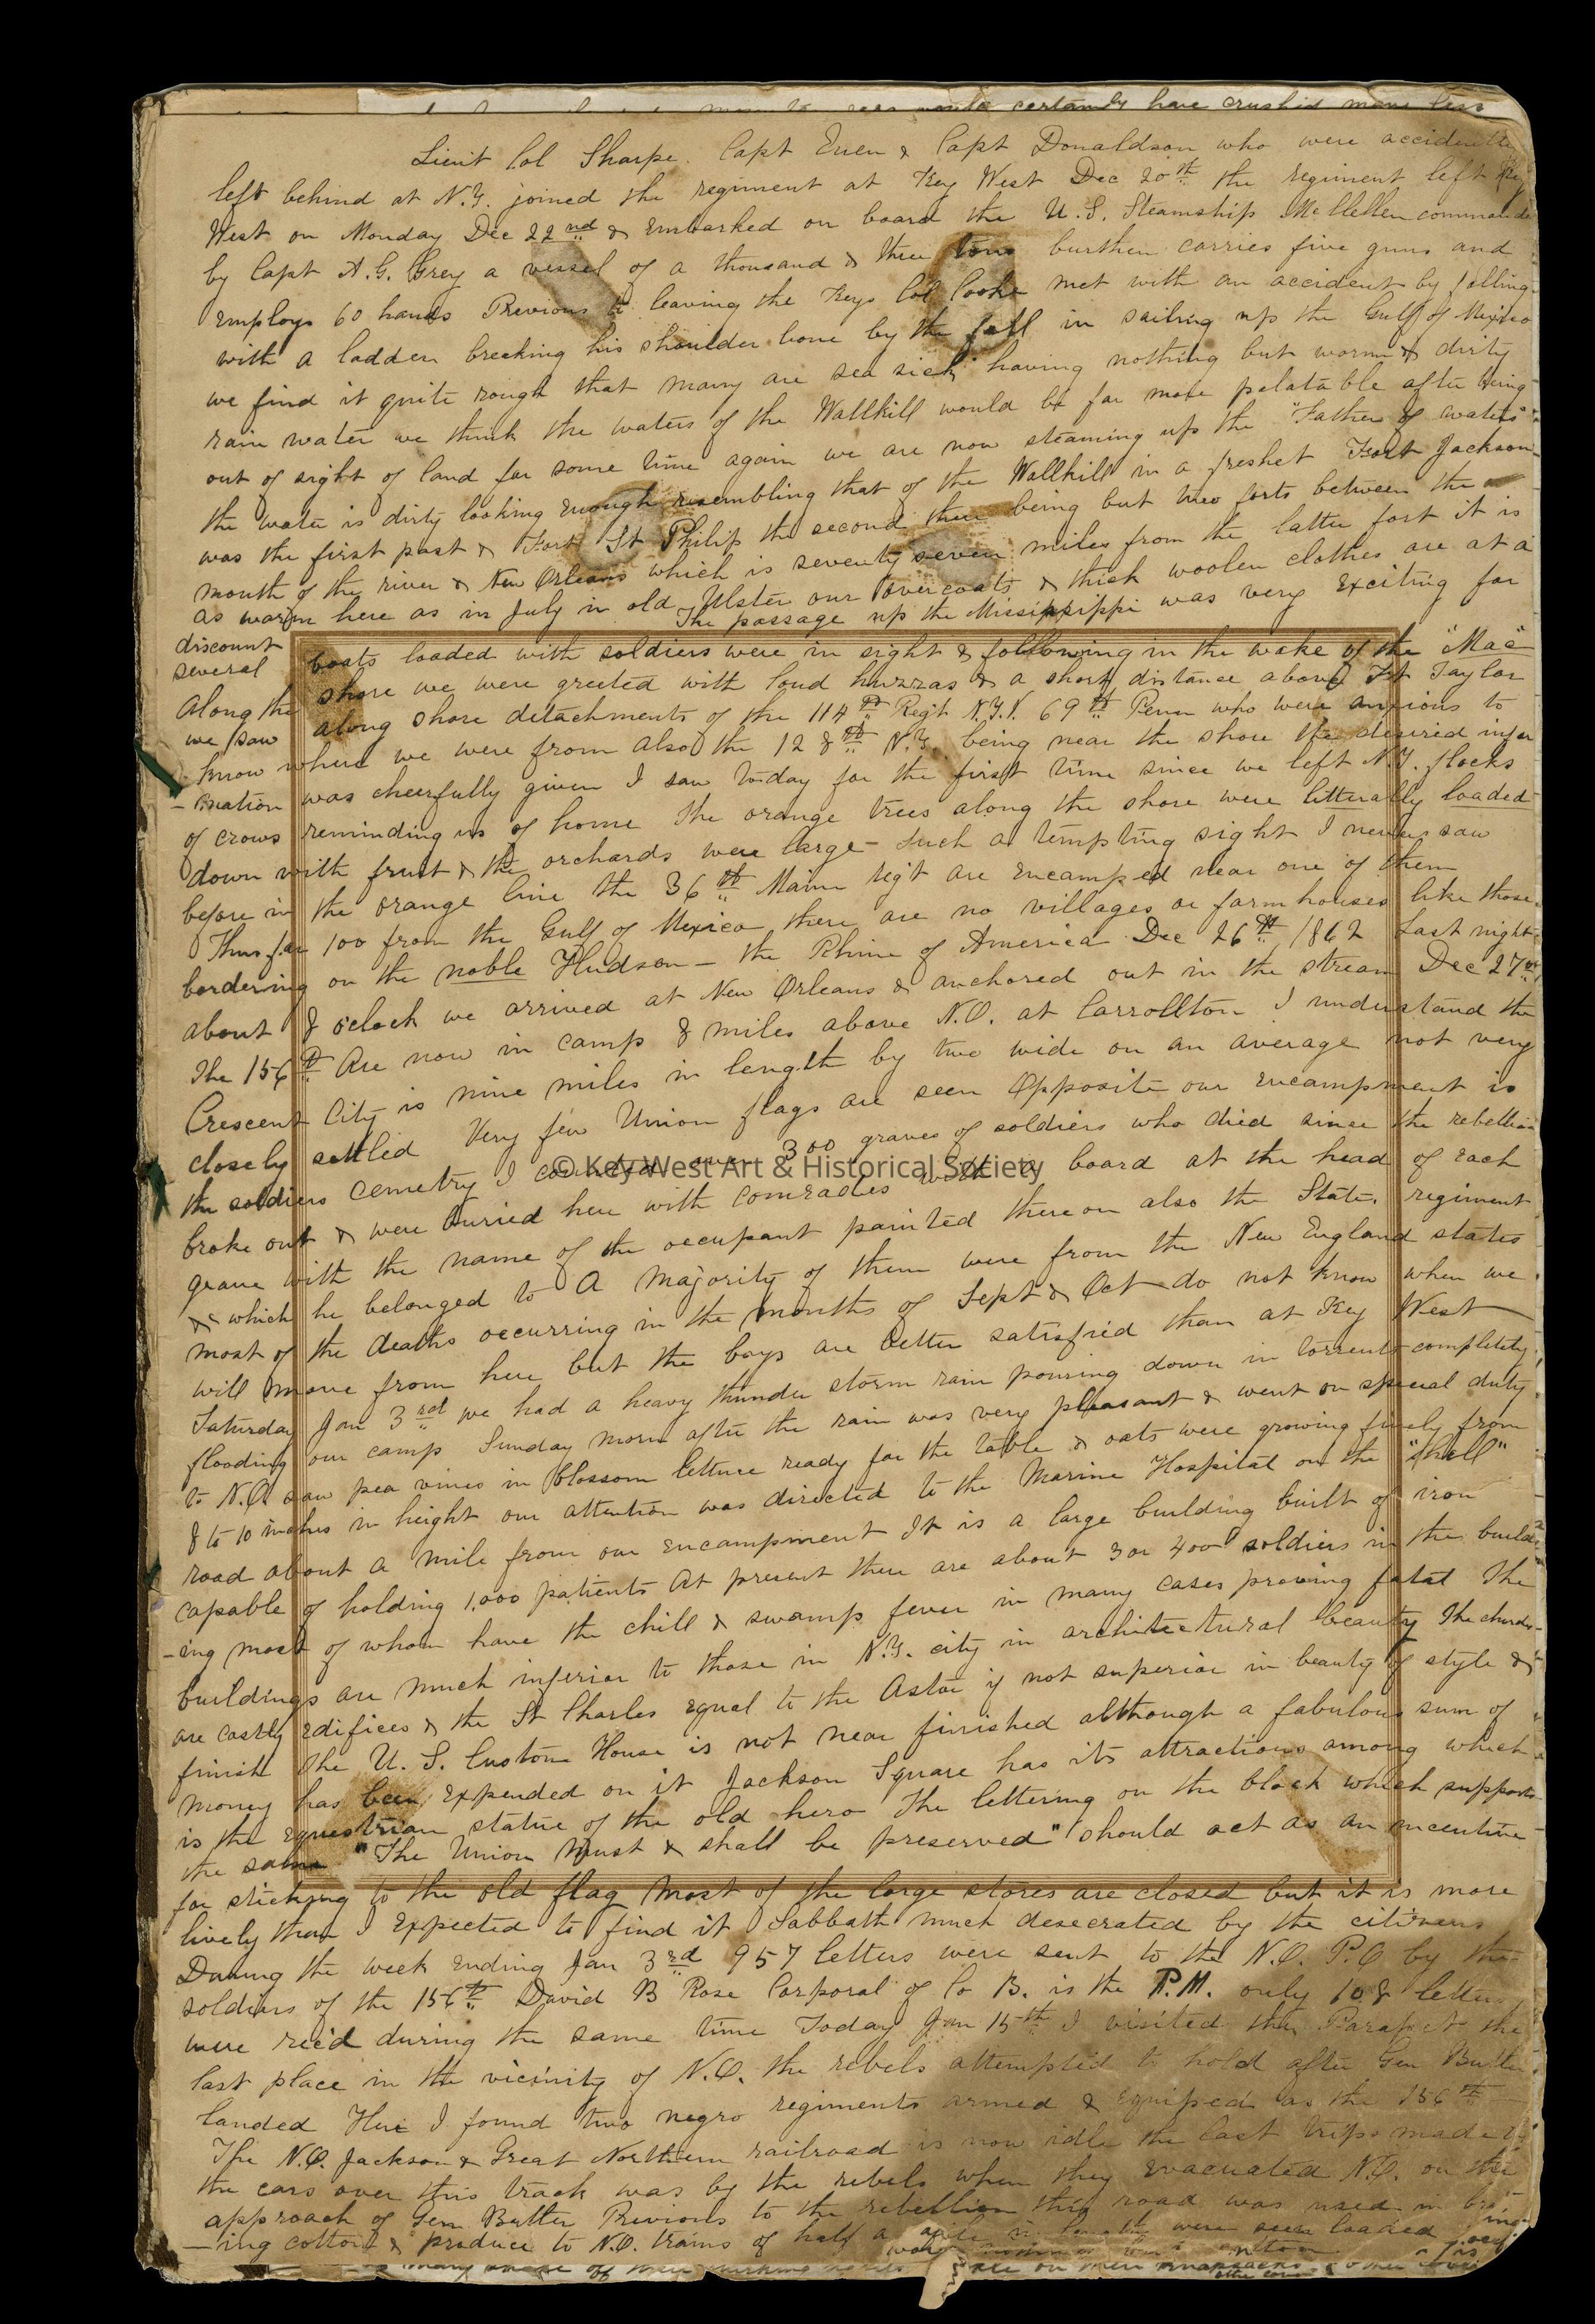 more to rees would certainly have crushed many less
Lieut Col Sharpe. Capt Euen & Capt Donaldson who were accidently
left behind at N.Y. joined the regiment at Key West Dec 20th the regiment left Key
West on Monday Dec 22nd & Embarked on board the U.S. Steamship McClellen commande
by Capt A.G. Grey a vessel of a thousand & three tons burthen carries five guns and
Employs 60 hands Previous to leaving the Keys Col Cooke met with an accident by falling
with a ladder breaking his shoulder bone by the fall in sailing up the Gulf of Mexico
we find it quite rough that many are sea sick having nothing but warm & dirty
rain water we think the waters of the Wallkill would be far more palatable after being
out of sight of land for some time again we are now steaming up the "Father of waters"
the water is dirty looking Enough resembling that of the Wallkill in a freshet Fort Jackson
was the first past & Fort St Philip the second there being but two forts between the
mouth of the river & New Orleans which is seventy seven miles from the latter fort it is
as warm here as in July in old Ulster our overcoats & thick woolen clothes are at a
discount The passage up the Missippippi was very Exciting for
several boats loaded with soldiers were in sight & following in the wake of the "Mac"
Along the shore we were greeted with loud huzzas & a short distance above Ft Taylor
we saw along shore detachments of the 114th Regt N.Y.V. 69th Penn who were anxious to
know where we were from also the 128th N.Y. being near the shore the desired infor
-mation was cheerfully given I saw today for the first time since we left N.Y. flocks
of crows reminding us of home The orange trees along the shore were litterally loaded
down with fruit & the orchards were large - Such a tempting sight I never saw
before in the orange line the 36th Maine regt are Encamped near one of them
Thus far 100 from the Gulf of Mexico there are no villages or farm houses like those
bordering on the noble Hudson - the Rhine of America Dec 26th 1862 Last night
about 8 oclock we arrived at New Orleans & anchored out in the stream Dec 27th
The 156th Are now in camp 8 miles above N.O. at Carrollton I understand the
Crescent City is nine miles in length by two wide on an average not very
closely settled Very few Union flags are seen Opposite our Encampment is
the soldiers Cemetry I counted over 300 graves of soldiers who died since the rebellion
broke out & were buried here with comrades with a board at the head of each
grave with the name of the occupant painted thereon also the State, regiment
& which he belonged to A majority of them were from the New England states
most of the deaths occurring in the months of Sept & Oct do not know when we
will move from here but the boys are better satisfied than at Key West
Saturday Jan 3rd we had a heavy thunder storm rain pouring down in torrents completely
flooding our camp Sunday morn after the rain was very pleasant & went on special duty
to N.O. saw pea vines in blossom lettuce ready for the table & oats were growing finely from
8 to 10 inches in height our attention was directed to the Marine Hospital on the "shell"
road about a mile from our Encampment It is a large building built of iron
capable of holding 1,000 patients At present there are about 3 or 400 soldiers in the build
-ing most of whom have the chill & swamp fever in many cases proving fatal The
buildings are much inferior to those in N.Y. city in architectural beauty The churches
are costly Edifices & the St Charles Equal to the Astor if not superior in beauty of style &
finish The U.S. Custom House is not near finished although a fabulous sum of
money has been Expended on it Jackson Square has its attractions among which
is the Equestrian statue of the old hero The lettering on the block which supports
the same "The Union Must & shall be preserved" should act as an incentive
for sticking to the old flag Most of the large stores are closed but it is more
lively than I Expected to find it Sabbath much desecrated by the citizens
During the week Ending Jan 3rd 957 letters were sent to the N.O. P.O by the
soldiers of the 156th David B Rose Corporal of Co B. is the P.M. only 108 letters
were rec'd during the same time Today Jan 15th I visited the Parapet the
last place in the vicinity of N.O. the rebels attempted to hold after Gen Butler
landed Here I found two negro regiments armed & Equiped as the 156th
The N.O. Jackson & Great Northern railroad is now idle the last trips made by
the cars over this track was by the rebels when they Evacuated N.O. on the
approach of Gen Butler Previous to the rebellion this road was used in bring
-ing cotton & produce to N.O. trains of half a mile in length were seen loaded
© Key West Art & Historical Society